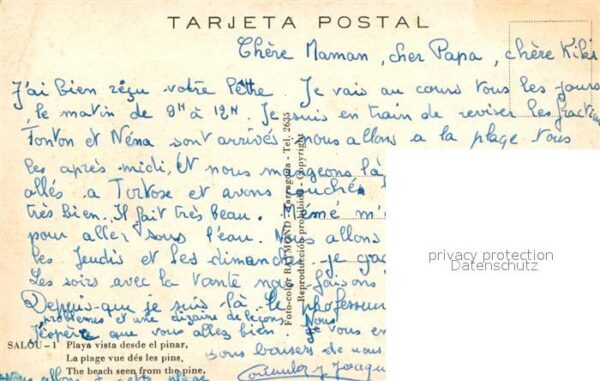 TARJETA POSTAL
Chère Maman, cher Papa, chère Kiki
J'ai bien reçu votre lettre. Je vais au cours tous les jours
, le matin de 9H à 12H. Je suis en train de reviser les fractions
Tonton et Néna sont arrivés, nous allons a la plage tous
les après midi, et nous mangeons là
allés a Tortose et avons couché
très bien. Il fait très beau. Mémé m'a
pour aller sous l'eau. Nous allons
les Jeudis et les dimanches je
Les soirs avec la nous faisons
Depuis que je suis là le professeur
problèmes et une dizaine de leçons. Nous
J'espère que vous allez bien. Je vous en
SALOU - 1 Playa vista desde el pinar,
La plage vue dés les pins,
The beach seen from the pine.
bons baisers de nous
Nous allons à cette plage
Foto-color RAYMOND - Tarragona - Tel. 2635
Reproducción prohibida - Copyright
privacy protection
Datenschutz